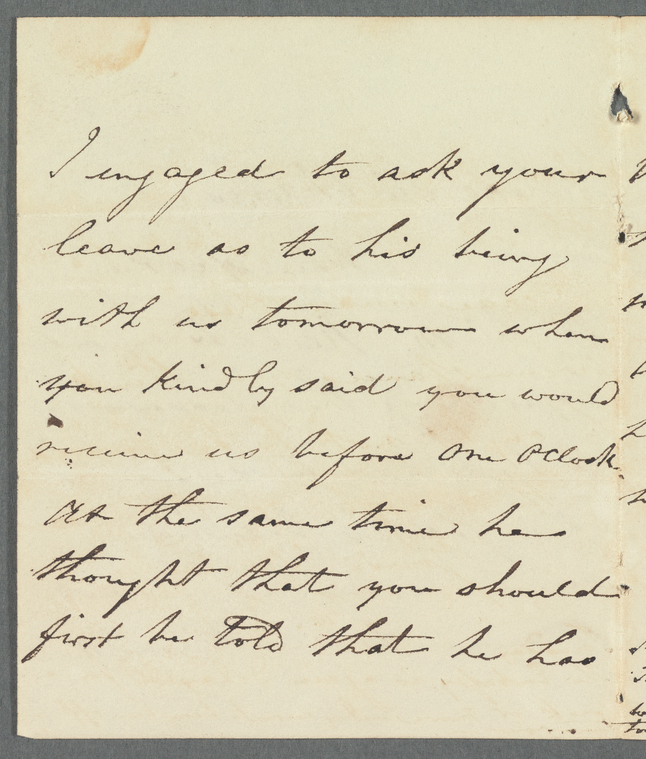 I engaged to ask your
leave as to his being
with us tomorrow when
you kindly said you would
receive us before One OClock.
At the same time he
thought that you should
first be told that he has